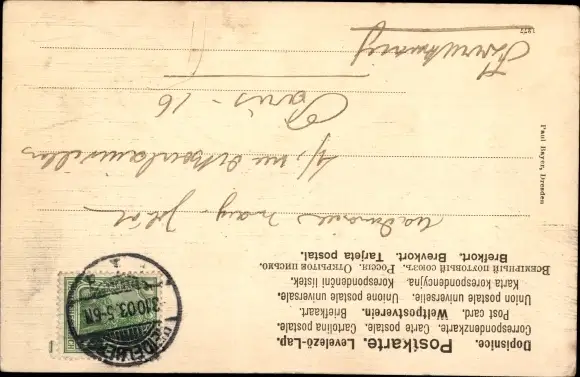 Dopisnice. Postkarte. Levelező-Lap.
Correspondenzkarte. Carte postale. Cartolina postale
Post card. Weltpostverein. Briefkaart.
Union postale universelle. Unione postale universale
Karta korespondencyjna. Korespondenční lístek.
Всемірный почтовый союзъ. Россія. Открытое письмо.
Brefkort. Brevkort. Tarjeta postal.
Mademoiselle
4, rue
Paris - 16
Paul Bayer, Dresden
1977
HEIDELBERG
.10.03.5-6N